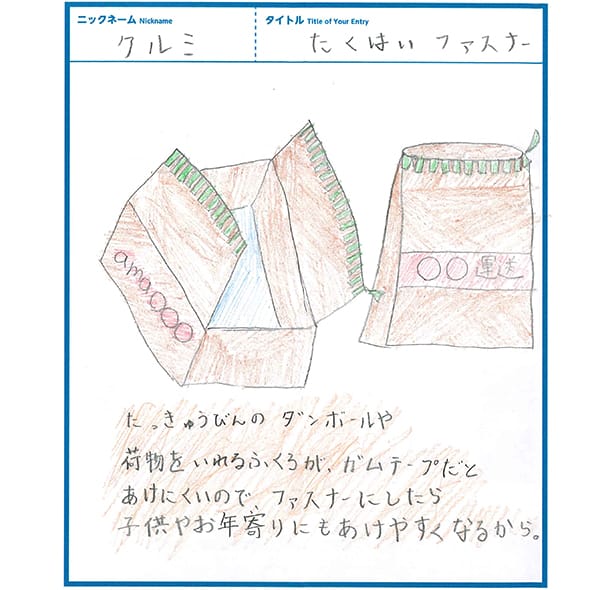 ニックネーム Nickname
クルミ
タイトル Title of Your Entry
たくはい ファスナー
ama○○○
○○運送
たっきゅうびんの ダンボールや
荷物をいれるふくろが、ガムテープだと
あけにくいので、ファスナーにしたら
子供やお年寄りにもあけやすくなるから。